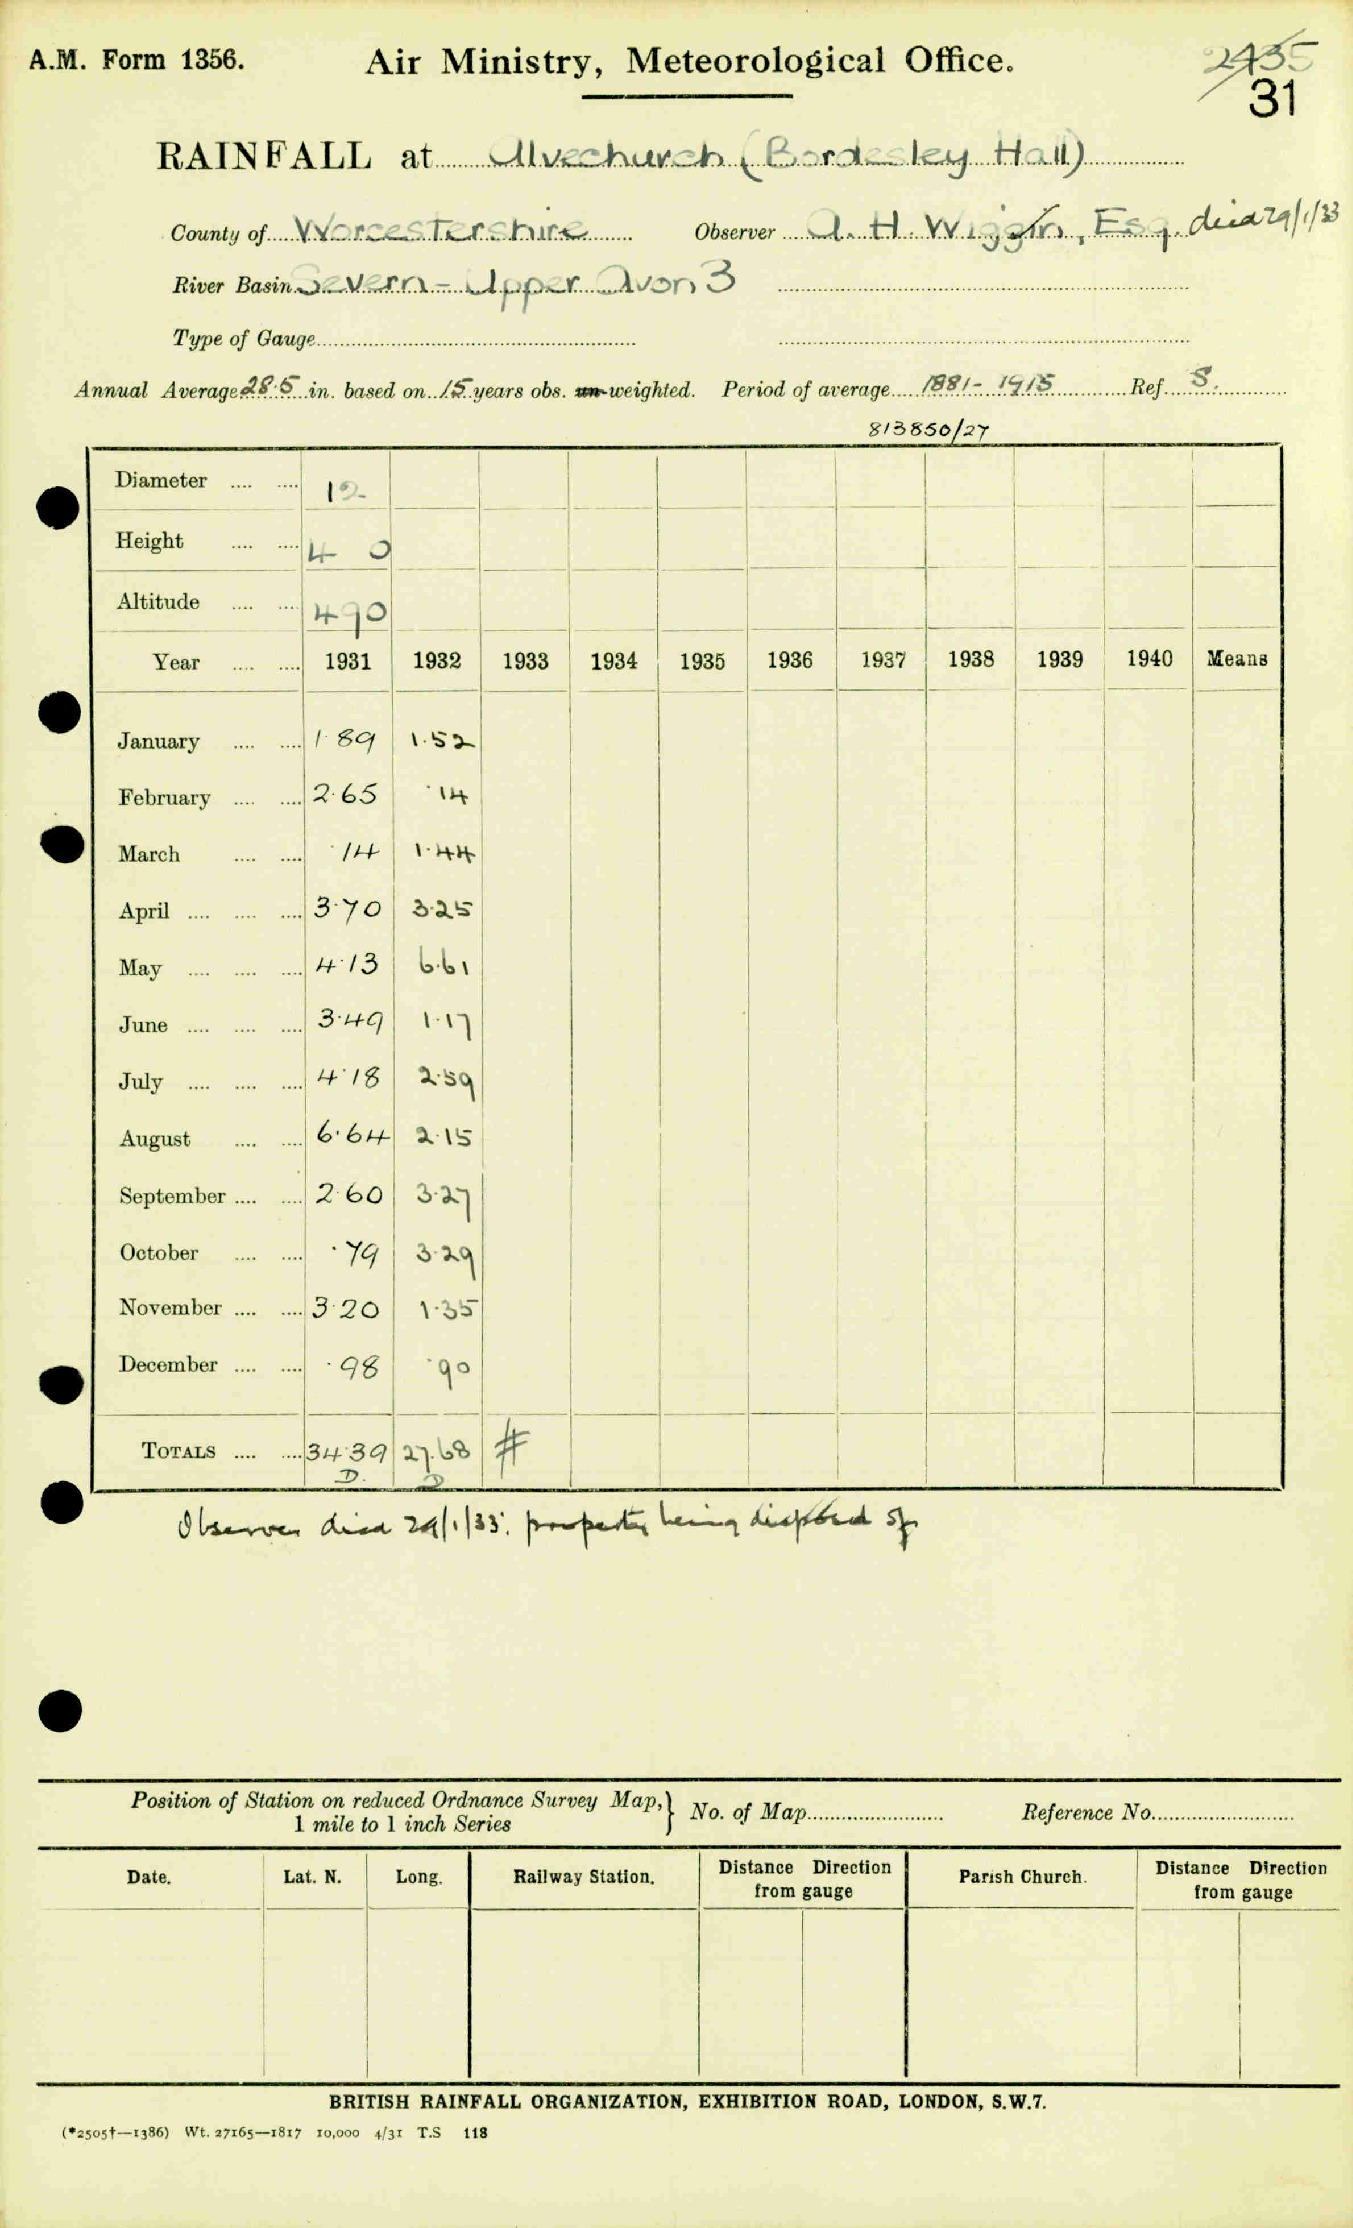 A.M. Form 1356. Air Ministry, Meteorological Office. 2435
31
RAINFALL at Alvechurch (Bordesley Hall)
County of Worcestershire Observer A. H. Wiggin, Esq. died 29/1/33
River Basin Severn - Upper Avon 3
Type of Gauge
Annual Average 28.5 in. based on 15 years obs. un-weighted. Period of average 1881-1915 Ref. S.
813850/27
Diameter 12
Height 4 0
Altitude 490
Year 1931 1932 1933 1934 1935 1936 1937 1938 1939 1940 Means
January 1.89 1.52
February 2.65 .14
March .14 1.44
April 3.70 3.25
May 4.13 6.61
June 3.49 1.17
July 4.18 2.59
August 6.64 2.15
September 2.60 3.27
October .79 3.29
November 3.20 1.35
December .98 .90
TOTALS 34.39 27.68 #
D. D
Observer died 29/1/33. property being disposed of
Position of Station on reduced Ordnance Survey Map,} No. of Map Reference No.
1 mile to 1 inch Series
Date. Lat. N. Long. Railway Station. Distance Direction Parish Church. Distance Direction
from gauge from gauge
BRITISH RAINFALL ORGANIZATION, EXHIBITION ROAD, LONDON, S.W.7.
(*2505†—1386) Wt. 27165—1817 10,000 4/31 T.S 118